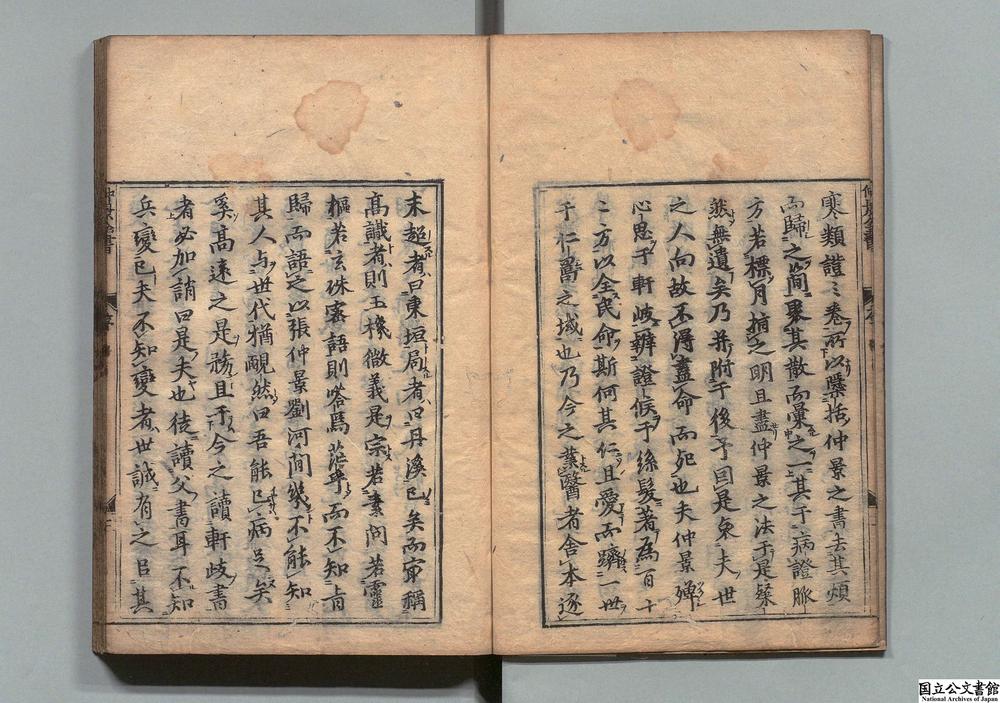 寒類證之卷所以檃括仲景之書去其煩
而歸之簡聚其散而彙之一其于病證脈
方若標月指之明且盡仲景之法于是粲
然無遺矣乃并附于後予因是哀夫世
之人向故不得盡命而死也夫仲景殫
心思于軒岐辨證候于絲髮著為百十
二方以全民命斯何其仁且愛而躋一世
于仁壽之域也乃今之業醫者舍本逐
末超者曰東垣局者曰丹溪已矣而窮稱
高識者則玉機微義是宗若素問若靈
樞若玄珠密語則嗒焉茫乎而不知旨
歸而語之以張仲景劉河間幾不能知
其人与世代猶靦然曰吾能已病足矣
奚高遠之是務且于今之讀軒岐書
者必加誚曰是夫也徒讀父書耳不知
兵變已夫不知變者世誠有之㠯其
国立公文書館
National Archives of Japan